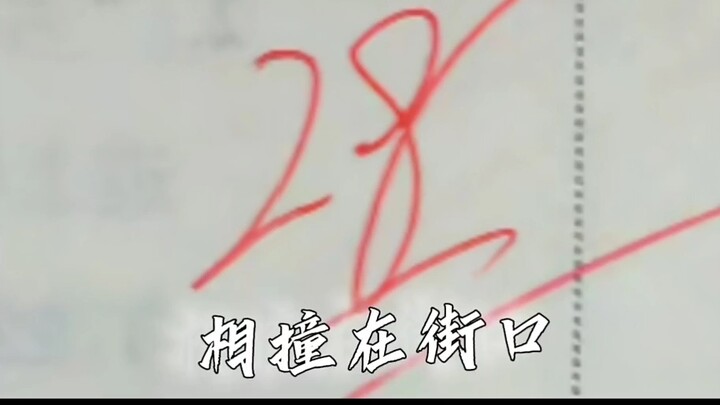 28
相撞在街口